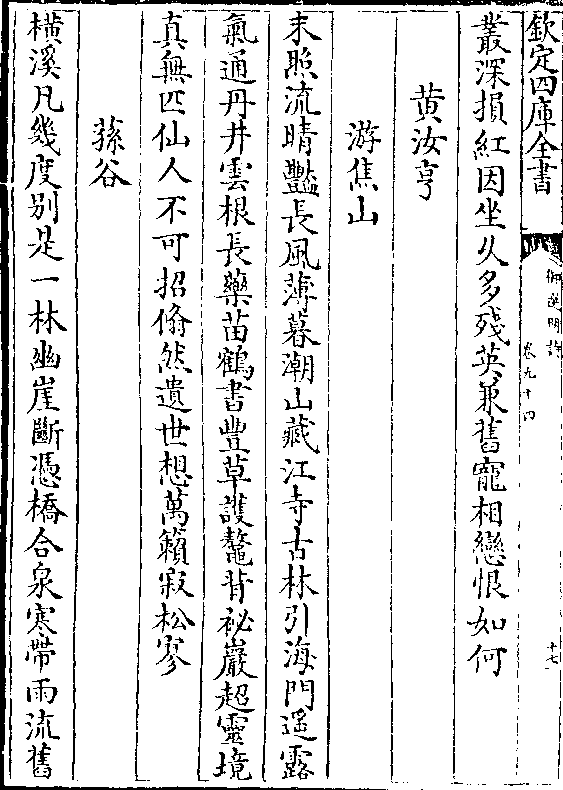 欽定四庫全書
御選明詩
卷九十四
十七
叢深損紅因坐久多殘英兼舊寵相戀恨如何
黄汝亨
游焦山
末照流晴豔長風薄暮潮山藏江寺古林引海門遥露
氣通丹井雲根長藥苗鶴書豐草護鼇背祕巖超靈境
真無匹仙人不可招翛然遺世想萬籟寂松寥
蓀谷
横溪凡幾度别是一林幽崖斷憑橋合泉寒帶雨流舊